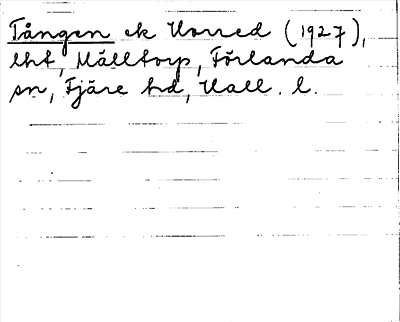 Tången ek Horred (1927),
lht, Mälltorp, Förlanda
sn, Fjäre hd, Hall. l.